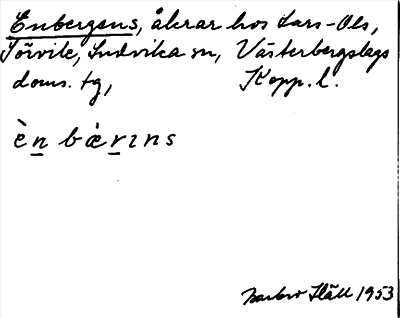 Enbergens, åkrar hos Lars-Ols,
Sörvik, Ludvika sn, Västerbergslags
doms. tg, Kopp. l.
èn bæ̀rıns
Barbro Häll 1953